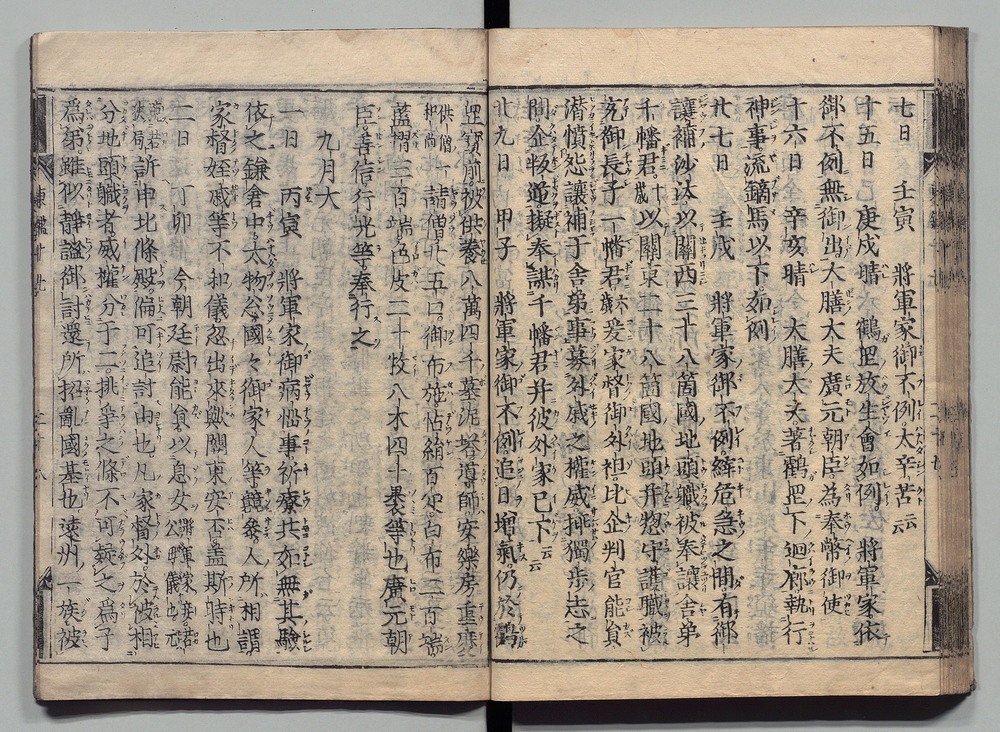 七日　壬寅　將軍家御不例太辛苦云云
十五日己庚戌晴　鶴岡放生會如例　將軍家依
御不例無御出大膳大夫廣元朝臣為奉幣御使
十六日　辛亥晴　大膳大夫著鶴岡下迴廊執行
神事流鏑馬以下如例
廿七日　壬戌　將軍家御不例縡危急之間有御
讓補沙汰以關西三十八箇國地頭職被奉讓舍弟
千幡君十歲以關東二十八箇國地頭并惣守護職被
充御長子一幡君六歲爰家督御外祖比企判官能員
潛憤怨讓補于舍弟事募外戚之權威挿獨步志之
間企叛逆擬奉謀千幡君并彼外家已下云云
廿九日　甲子　將軍家御不例追日增氣仍於鶴
岡寶前被供養八萬四千基泥塔導師安樂房重慶
供僧一請僧廿五口御布施帖絹百疋白布二百端
藍摺三百端色皮二十枚八木四十裹等也廣元朝
臣善信行光等奉行之
九月大
一日　丙寅　將軍家御病惱事祈療共如無其驗
依之鎌倉中太物忩國々御家人等競參人所相謂
家督姪戚等不和儀忽出來歟關東安否蓋斯時也
二日　丁卯　今朝廷尉能員以息女將軍家妾若公母儀也元
訴申北條殿偏可追討由也凡家督外於被相
分地頭職者威權分于二挑爭之條不可疑之為子
為弟雖似靜謐御計還所招亂國基也遠州一族被
東鑑十七